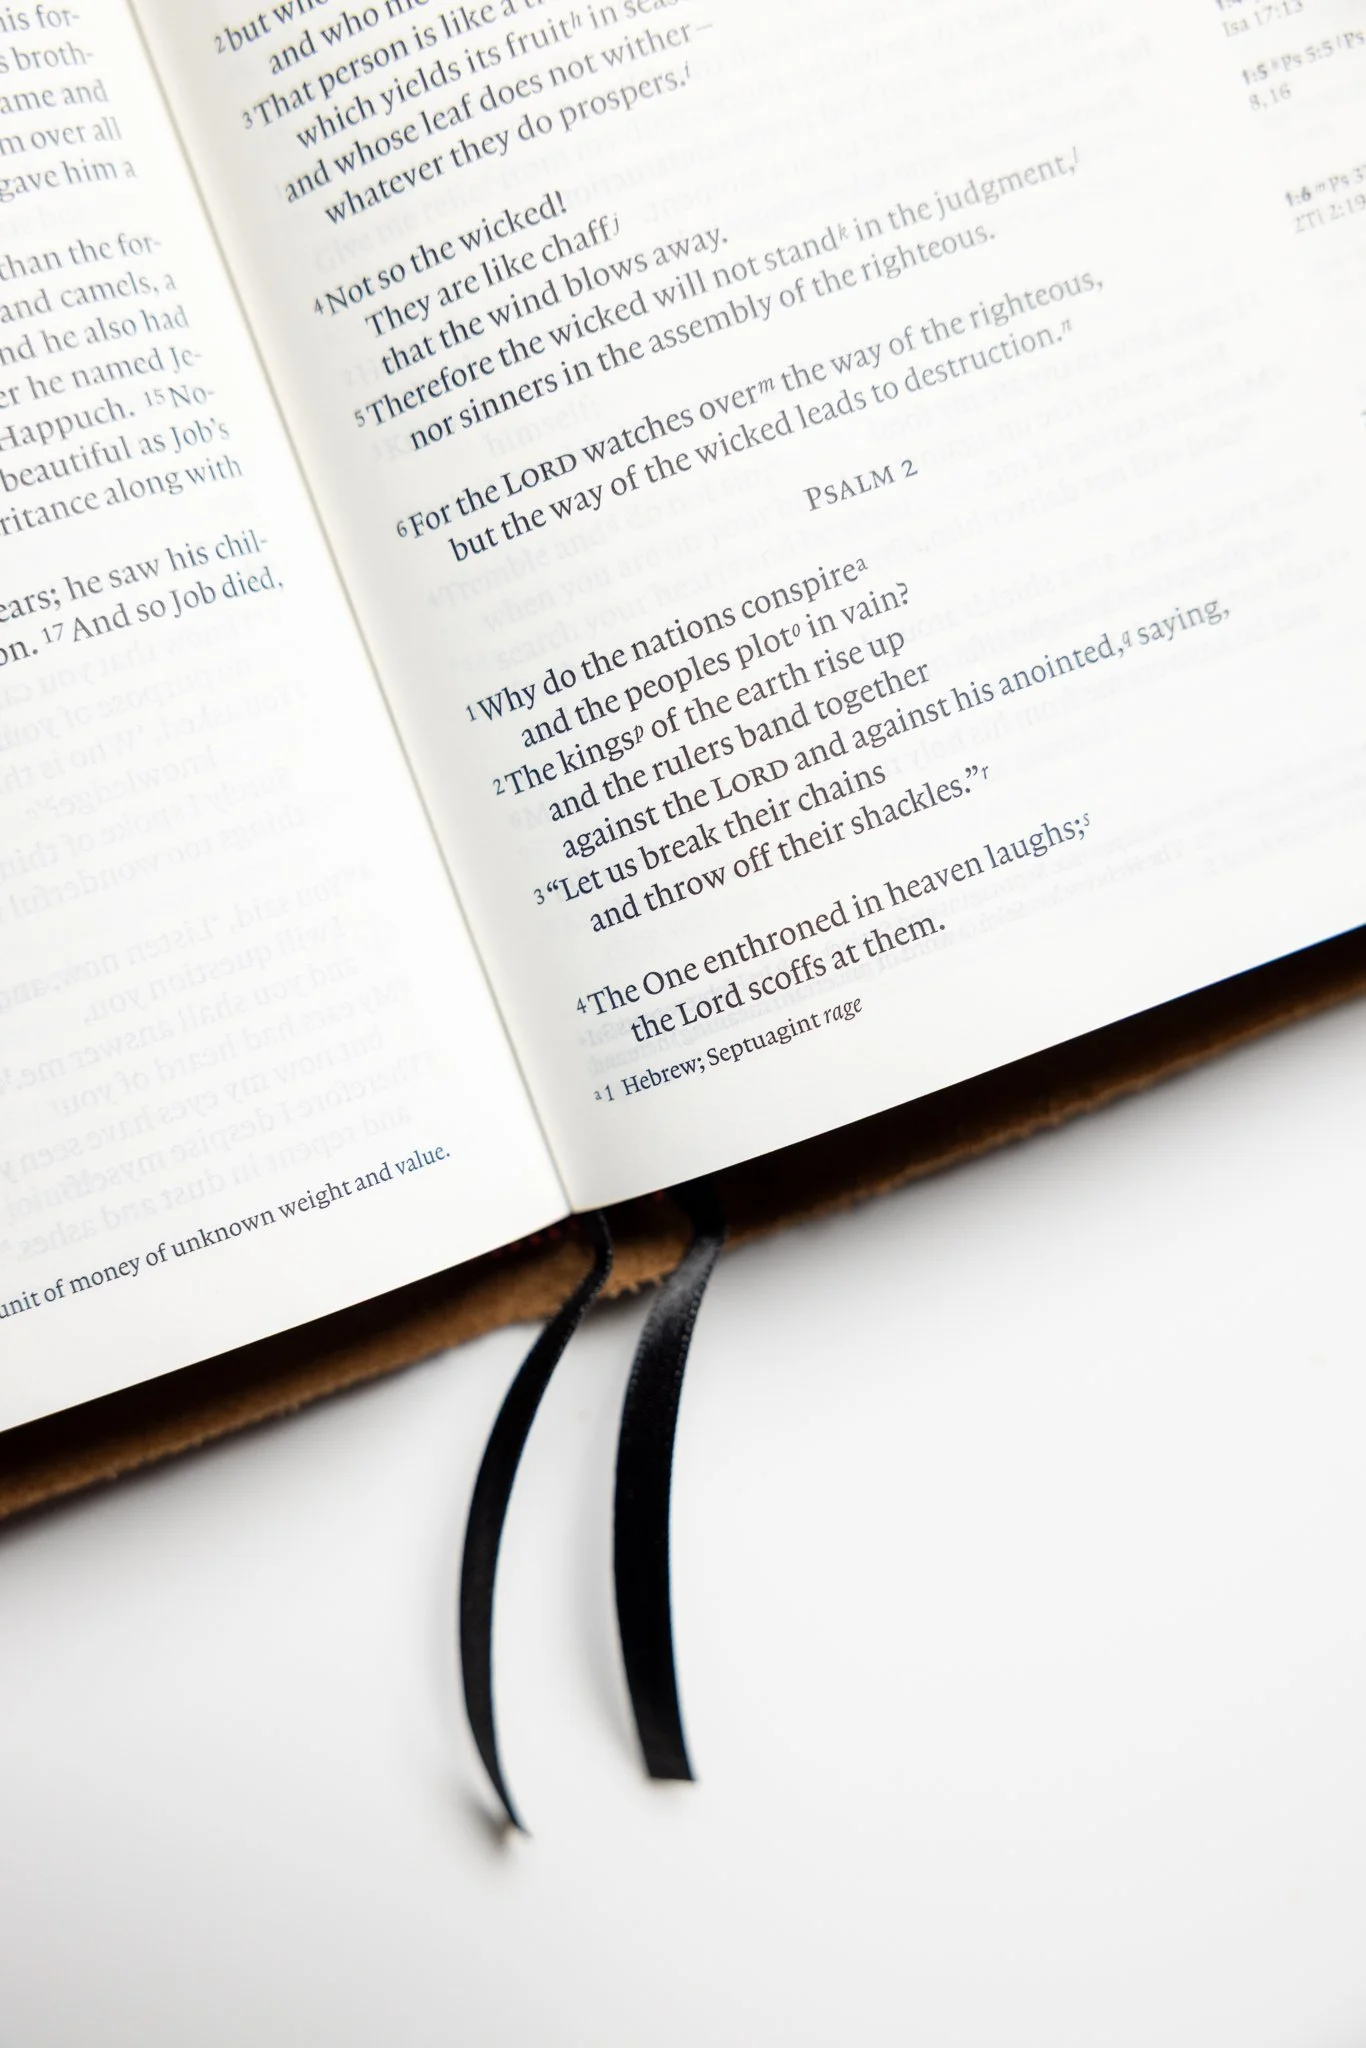 his for-
s broth-
ame and
m over all
gave him a
than the for-
and camels, a
nd he also had
er he named Je-
Happuch. 15 No-
beautiful as Job's
ritance along with
ears; he saw his chil-
on. 17 And so Job died,
unit of money of unknown weight and value.
2 but who
and who me
3 That person is like a
which yields its fruit h in
and whose leaf does not wither—
whatever they do prospers. i
4 Not so the wicked!
They are like chaff j
that the wind blows away.
5 Therefore the wicked will not stand k in the judgment, l
nor sinners in the assembly of the righteous.
6 For the LORD watches over m the way of the righteous,
but the way of the wicked leads to destruction. n
PSALM 2
1 Why do the nations conspire a
and the peoples plot o in vain?
2 The kings p of the earth rise up
and the rulers band together
against the LORD and against his anointed, q saying,
3 “Let us break their chains
and throw off their shackles.” r
4 The One enthroned in heaven laughs; s
the Lord scoffs at them.
a 1 Hebrew; Septuagint rage
Isa 17:13
1:5 k Ps 5:5 l Ps
8, 16
1:6 m Ps 3
2Ti 2:19